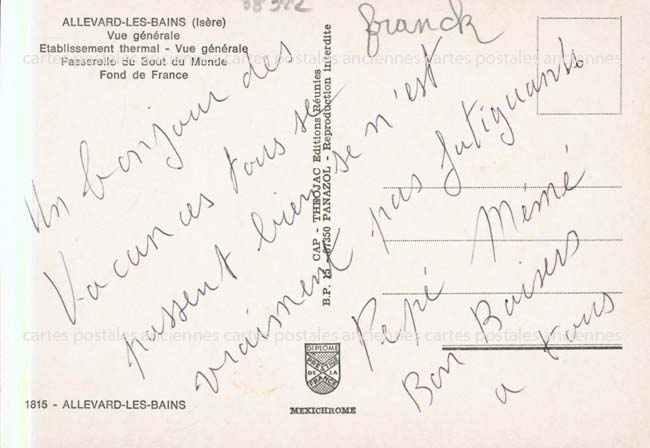 38 522
franck
ALLEVARD-LES-BAINS (Isère)
Vue générale
Etablissement thermal - Vue générale
Passerelle du Bout du Monde
Fond de France
cartes postales anciennes cartes postales anciennes cartes postales anciennes
Un bonjour des
Vacances tous se
passent bien se n'est
vraiment pas fatiguante
Pepé Mémé
Bon Baisers
a tous
CAP - THEOJAC Editions Réunies
B.P. 15 - 87350 PANAZOL - Reproduction interdite
cartes postales anciennes cartes postales anciennes cartes postales anciennes
DIPLOME
PRESTIGE
DE LA
FRANCE
1815 - ALLEVARD-LES-BAINS
MEXICHROME